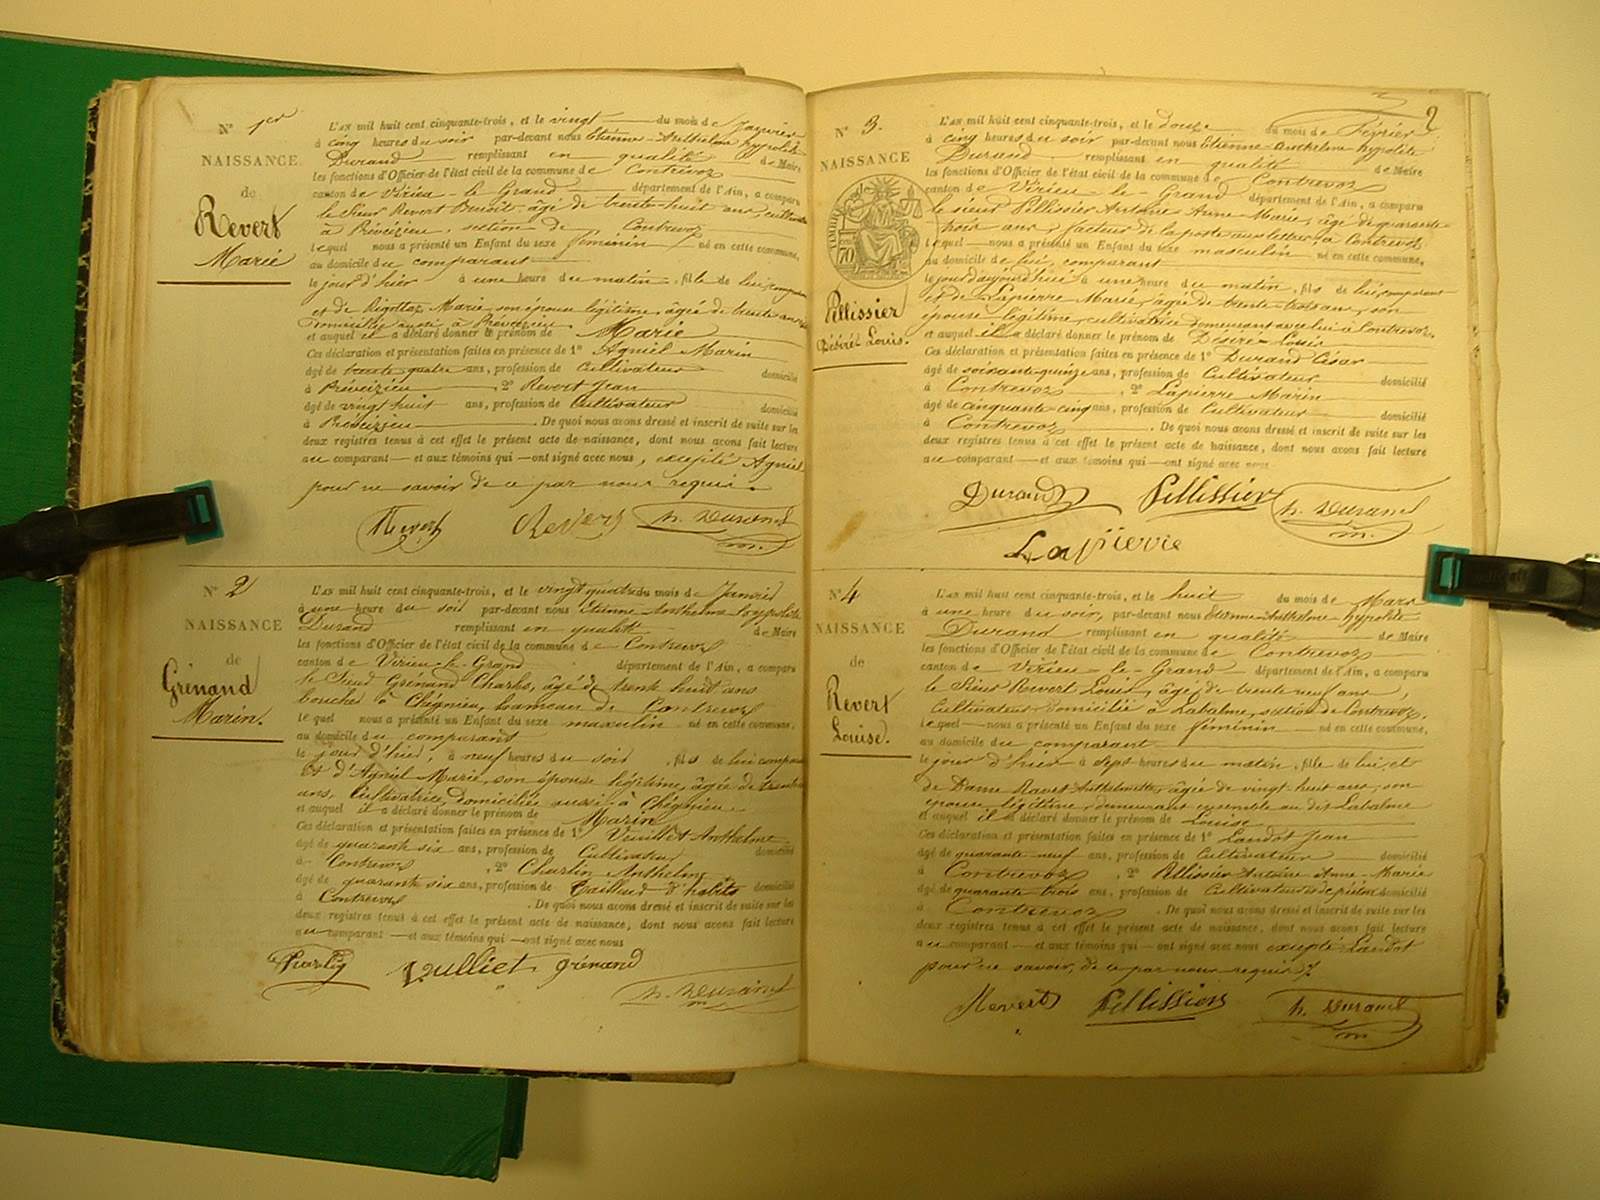 N° 1er
NAISSANCE
de
Revert
Marie
L'AN mil huit cent cinquante-trois, et le vingt du mois de Janvier
à cinq heures du soir par-devant nous Etienne-Anthelme hypolite
Durand remplissant en qualité de Maire
les fonctions d'Officier de l'état civil de la commune de Contrevoz
canton de Virieu-le-Grand département de l'Ain, a comparu
le Sieur Revert Benoit, âgé de trente-huit ans, cultivateur
à Préveizieu, section de Contrevoz
lequel nous a présenté un Enfant du sexe féminin né en cette commune,
au domicile du comparant
le jour d'hier à une heure du matin, fille de lui comparant
et de Rigottaz Marie son épouse légitime, âgée de trente ans
domiciliée aussi à Préveizieu
et auquel il a déclaré donner le prénom de Marie
Ces déclaration et présentation faites en présence de 1° Agniel Marin
âgé de trente quatre ans, profession de Cultivateur domicilié
à Préveizieu, 2° Revert Jean
âgé de vingt huit ans, profession de Cultivateur domicilié
à Préveizieu. De quoi nous avons dressé et inscrit de suite sur les
deux registres tenus à cet effet le présent acte de naissance, dont nous avons fait lecture
au comparant et aux témoins qui ont signé avec nous, excepté Agniel
pour ne savoir de ce par nous requis.
Revert Revert h. Durand
m.
N° 2
NAISSANCE
de
Grénand
Marin.
L'AN mil huit cent cinquante-trois, et le vingt quatre du mois de Janvier
à une heure du soir par-devant nous Etienne Anthelme hyppolite
Durand remplissant en qualité de Maire
les fonctions d'Officier de l'état civil de la commune de Contrevoz
canton de Virieu-le-Grand département de l'Ain, a comparu
le Sieur Grénand Charles, âgé de trente huit ans
boucher à Chégnieu, hameau de Contrevoz
lequel nous a présenté un Enfant du sexe masculin né en cette commune,
au domicile du comparant
le jour d'hier, à neuf heures du soir, fils de lui comparant
et d'Agniel Marie, son épouse légitime, âgée de
ans, Cultivatrice, domiciliée aussi à Chégnieu
et auquel il a déclaré donner le prénom de Marin
Ces déclaration et présentation faites en présence de 1° Vuillet Anthelme
âgé de quarante six ans, profession de Cultivateur domicilié
à Contrevoz, 2° Charlin Anthelme
âgé de quarante six ans, profession de Tailleur d'habits domicilié
à Contrevoz. De quoi nous avons dressé et inscrit de suite sur les
deux registres tenus à cet effet le présent acte de naissance, dont nous avons fait lecture
au comparant et aux témoins qui ont signé avec nous
Vulliet grénand
h. Durand
m
2
N° 3.
NAISSANCE
TIMBRE
70
Pellissier
Désiré Louis.
L'AN mil huit cent cinquante-trois, et le douze du mois de Février
à cinq heures du soir par-devant nous Etienne-Anthelme-hypolite
Durand remplissant en qualité de Maire
les fonctions d'Officier de l'état civil de la commune de Contrevoz
canton de Virieu-le-Grand département de l'Ain, a comparu
le sieur Pellissier Antoine Anne-Marie, âgé de quarante
trois ans, facteur de la poste aux lettres, à Contrevoz
lequel nous a présenté un Enfant du sexe masculin né en cette commune,
au domicile de lui, comparant
le jour d'aujourd'hui à une heure du matin, fils de lui comparant
et de Lapierre Marie, âgée de trente-trois ans, son
épouse légitime, cultivatrice demeurant avec lui à Contrevoz.
et auquel il a déclaré donner le prénom de Désiré-Louis
Ces déclaration et présentation faites en présence de 1° Durand César
âgé de soixante-quinze ans, profession de Cultivateur domicilié
à Contrevoz, 2° Lapierre Marin
âgé de cinquante-cinq ans, profession de Cultivateur domicilié
à Contrevoz. De quoi nous avons dressé et inscrit de suite sur les
deux registres tenus à cet effet le présent acte de naissance, dont nous avons fait lecture
au comparant et aux témoins qui ont signé avec nous
Durand Pellissier h. Durand
m.
Lapierre
N° 4
NAISSANCE
de
Revert
Louise.
L'AN mil huit cent cinquante-trois, et le huit du mois de Mars
à une heure du soir, par-devant nous Etienne-Anthelme-hypolite
Durand remplissant en qualité de Maire
les fonctions d'Officier de l'état civil de la commune de Contrevoz
canton de Virieu-le-Grand département de l'Ain, a comparu
le Sieur Revert Louis, âgé de trente neuf ans,
Cultivateur domicilié à Labalme, section de Contrevoz.
lequel nous a présenté un Enfant du sexe féminin né en cette commune,
au domicile du comparant
le jour d'hier à sept heures du matin, fille de lui, et
de Dame Ravet Anthelmette, âgée de vingt huit ans, son
épouse légitime, demeurant ensemble au dit Labalme
et auquel il a déclaré donner le prénom de Louise
Ces déclaration et présentation faites en présence de 1° Landot Jean
âgé de quarante-neuf ans, profession de Cultivateur domicilié
à Contrevoz, 2° Pellissier Antoine Anne-Marie
âgé de quarante-trois ans, profession de Cultivateur domicilié
à Contrevoz. De quoi nous avons dressé et inscrit de suite sur les
deux registres tenus à cet effet le présent acte de naissance, dont nous avons fait lecture
au comparant et aux témoins qui ont signé avec nous excepté Landot
pour ne savoir, de ce par nous requis.
Revert Pellissier h. Durand
m